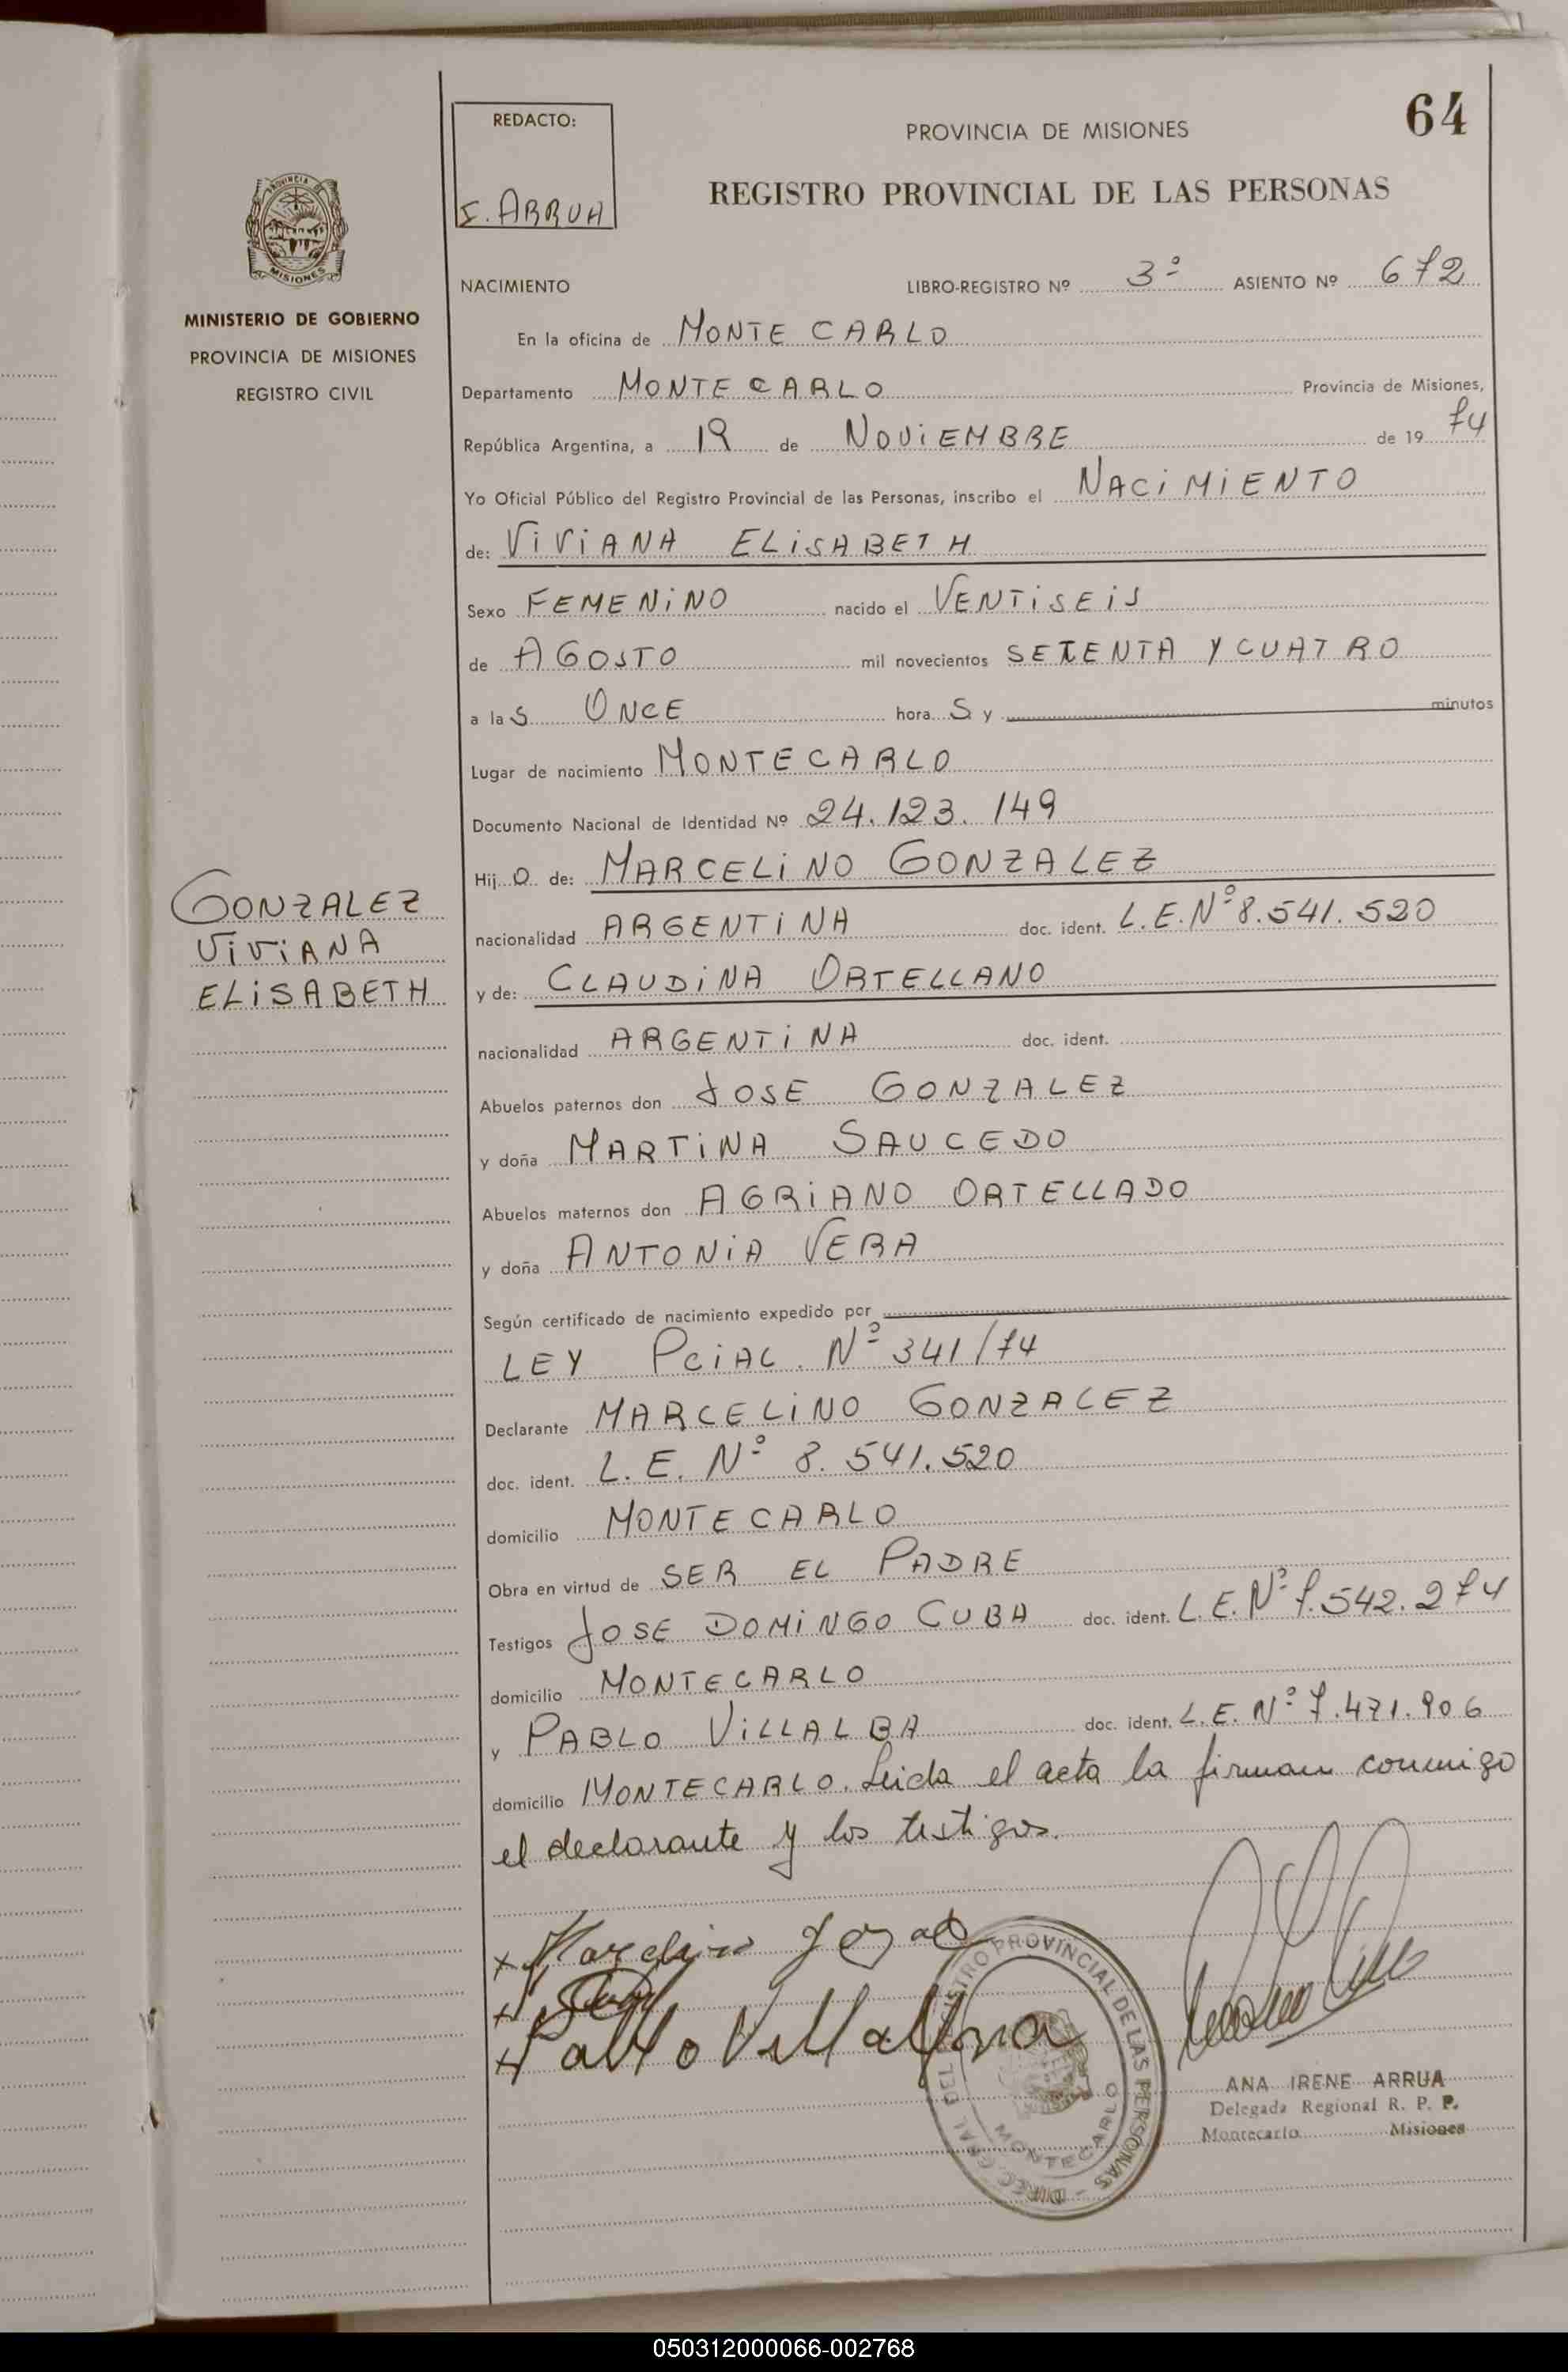 64
REDACTO:
I. ARRUA
PROVINCIA DE MISIONES
REGISTRO PROVINCIAL DE LAS PERSONAS
PROVINCIA DE
MISIONES
MINISTERIO DE GOBIERNO
PROVINCIA DE MISIONES
REGISTRO CIVIL
NACIMIENTO LIBRO-REGISTRO Nº 3º ASIENTO Nº 672
En la oficina de MONTE CARLO
Departamento MONTECARLO Provincia de Misiones,
República Argentina, a 19 de NOViEMBRE de 19 74
Yo Oficial Público del Registro Provincial de las Personas, inscribo el NACiMiENTO
de: ViViANA ELiSABETH
Sexo FEMENiNO nacido el VENTiSEiS
de AGOSTO mil novecientos SETENTA Y CUATRO
a las ONCE horas y minutos
Lugar de nacimiento MONTECARLO
Documento Nacional de Identidad Nº 24.123.149
Hijo de: MARCELiNO GONZALEZ
GONZALEZ
ViViANA
ELiSABETH
nacionalidad ARGENTiNA doc. ident. L.E.Nº 8.541.520
y de: CLAUDiNA ORTELLANO
nacionalidad ARGENTiNA doc. ident.
Abuelos paternos don JOSE GONZALEZ
y doña MARTiNA SAUCEDO
Abuelos maternos don AGRiANO ORTELLADO
y doña ANTONiA VERA
Según certificado de nacimiento expedido por
LEY PCiAL. Nº 341/74
Declarante MARCELiNO GONZALEZ
doc. ident. L.E. Nº 8.541.520
domicilio MONTECARLO
Obra en virtud de SER EL PADRE
Testigos JOSE DOMiNGO CUBA doc. ident. L.E.Nº 7.542.274
domicilio MONTECARLO
y PABLO ViLLALBA doc. ident. L.E. Nº 7.471.906
domicilio MONTECARLO. Leida el acta la firman conmigo
el declarante y los testigos.
Pablo Villalba
DIREC. GRAL. DEL REGISTRO PROVINCIAL DE LAS PERSONAS -
MONTECARLO
ANA IRENE ARRUA
Delegada Regional R. P. P.
Montecarlo Misiones
050312000066-002768